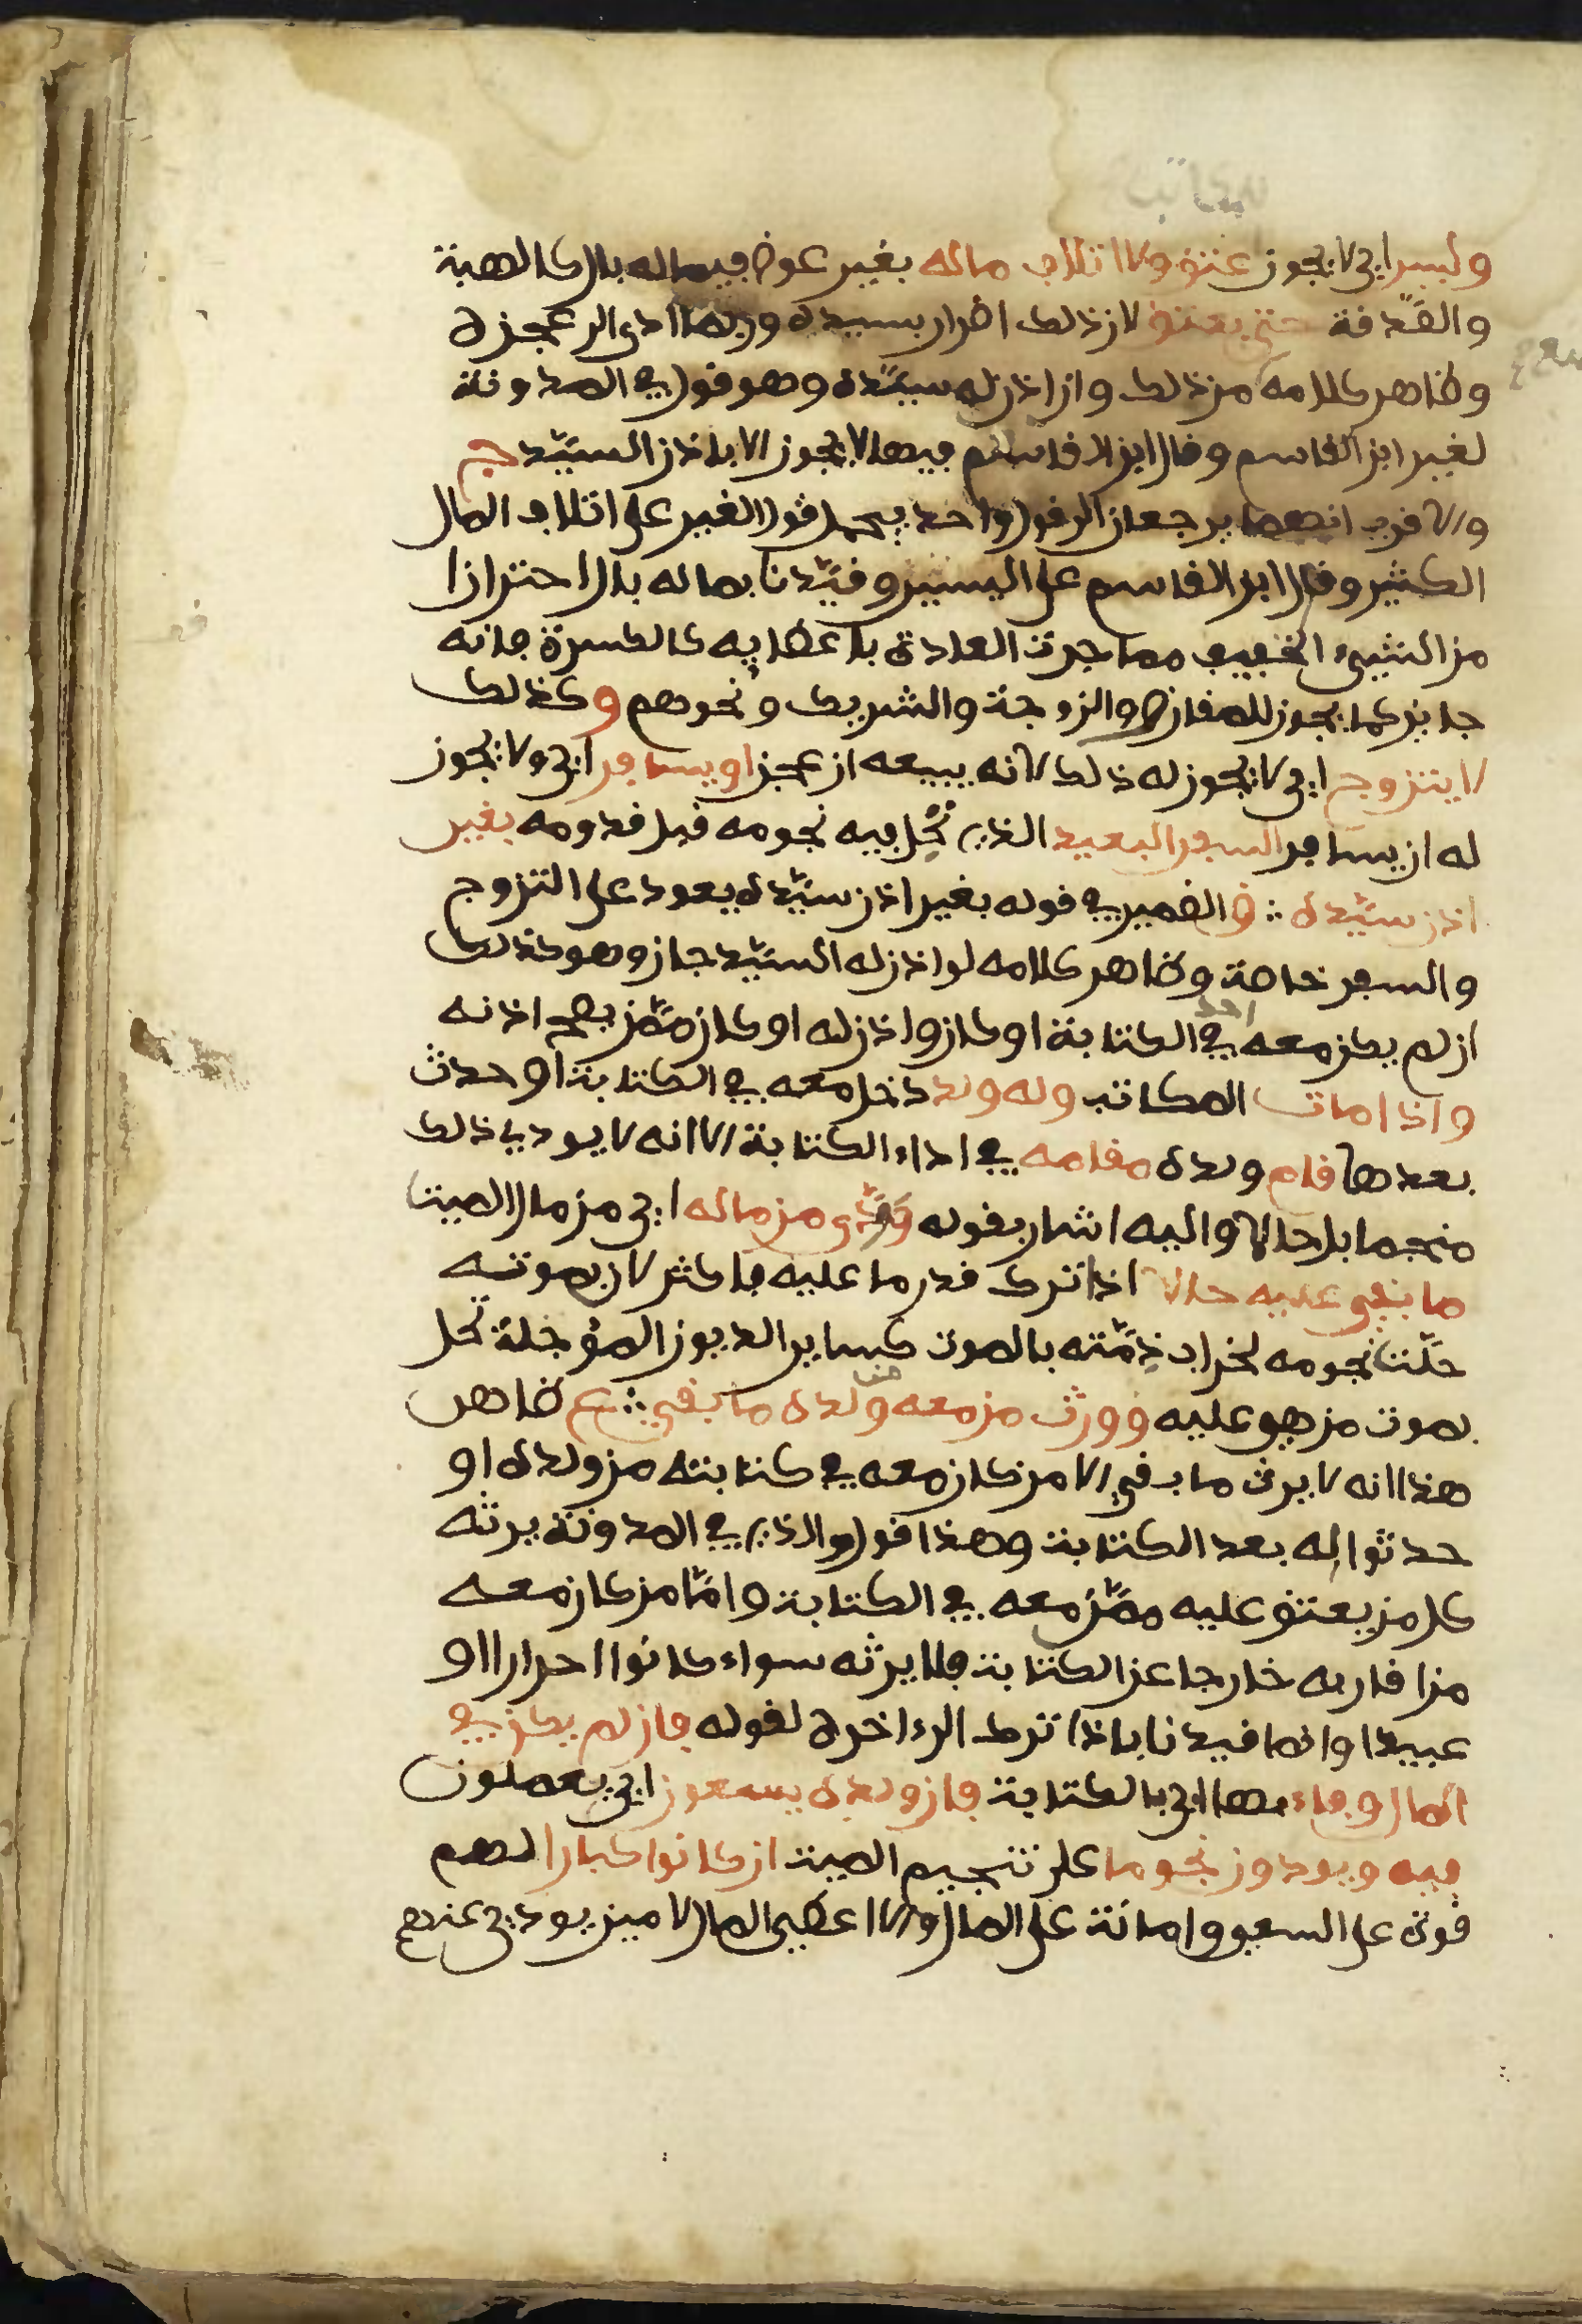 وليس اي لا يجوز عتق ولا اتلاف ماله بغير عوض فيما له بال كالهبة
والصدقة حتى يعتق لان ذلك اضرار بسيده وربما ادى الى عجزه
وظاهر كلامه من ذلك وان اذن له سيده وهو قول في المدونة
لغير ابن القاسم وقال ابن القاسم فيها لا يجوز الا باذن السيد ج
والاقرب انهما يرجعان الى قول واحد يحمل قول الغير على اتلاف المال
الكثير وقال ابن القاسم على اليسير وقيدنا بماله بال احترازا
من الشيء الخفيف مما جرت العادة باعطايه كالكسرة فانه
جايز كما يجوز للمقارض والزوجة والشريك ونحوهم وكذلك
لا يتزوج اي لا يجوز له ذلك لانه يبيعه ان عجز او يسافر اي ولا يجوز
له ان يسافر السفر البعيد الذي تحل فيه نجومه قبل قدومه بغير
اذن سيده ؞ ق الضمير في قوله بغير اذن سيده يعود على التزوج
والسفر خاصة وظاهر كلامه لو اذن له السيد جاز وهو كذلك
ان لم يكن معه احد في الكتابة او كان واذن له او كان ممن يصح اذنه
واذا مات المكاتب وله ولد دخل معه في الكتابة او حدث
بعدها قام ولده مقامه في اداء الكتابة الا انه لا يودي ذلك
منجما بل حالا واليه اشار بقوله وودى من ماله اي من مال الميت
ما بقي عليه حالا اذا ترك قدر ما عليه فاكثر لان بموته
حلت نجومه لخراب ذمته بالموت كساير الديون المؤجلة تحل
بموت من هي عليه وورث من معه من ولده ما بقي ؞ ع ظاهر
هذا انه لا يرث ما بقي الا من كان معه في كتابته من ولده او
حدثوا له بعد الكتابة وهذا قول والذي في المدونة يرثه
كل من يعتق عليه ممن معه في الكتابة واما من كان معه
من اقاربه خارجا عن الكتابة فلا يرثه سواء كانوا احرارا او
عبيدا وانما قيدنا باذا ترك الى ءاخره لقوله فان لم يكن في
المال وفاء بها اي بالكتابة فان ولده يسعون اي يعملون
فيه ويودون نجوما على تنجيم الميت ان كانوا كبارا لهم
قوة على السعي وامانة على المال والا اعطي المال لامين يودي عنهم